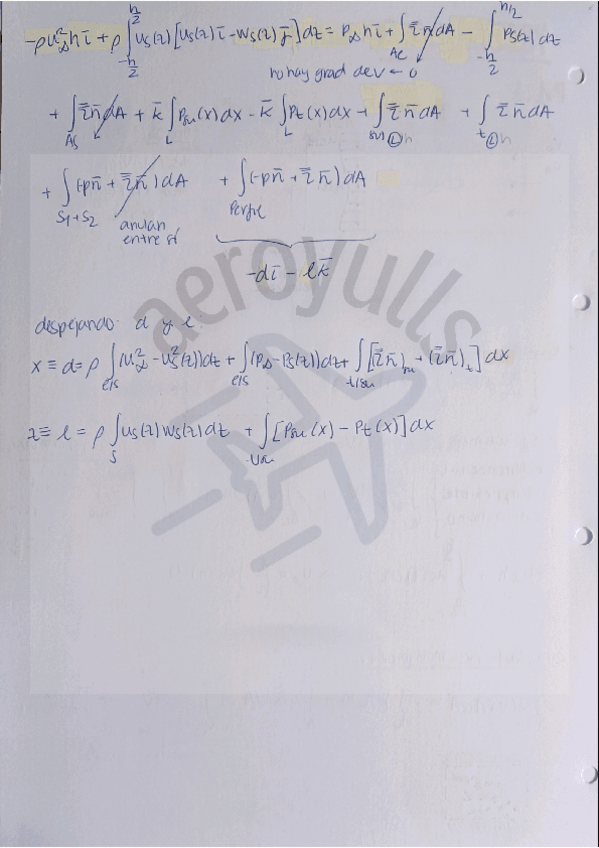 -ρu²∞h ī + ρ∫_{-h/2}^{h/2} us(z)[us(z)ī - ws(z)j̄]dz = P∞hī + ∫_{Ae} τ̿n̄dA - ∫_{-h/2}^{h/2} Ps(z)dz
no hay grad de v ← 0
+ ∫_{As} τ̿n̄dA + k̄∫_L Psu(x)dx - k̄∫_L Pt(x)dx + ∫ τ̿n̄dA + ∫ τ̿n̄dA
+ ∫_{S1+S2} (-pn̄ + τ̿n̄)dA + ∫_{Perfil} (-pn̄ + τ̿n̄)dA
anulan
entre sí
-dī - lk̄
despejando d y l:
x ≡ d = ρ∫_{e/s}(u²∞ - us²(z))dz + ∫_{e/s}(P∞ - Ps(z))dz + ∫[(τ̿n̄)su + (τ̿n̄)t]dx
z ≡ l = ρ∫_s us(z)ws(z)dz + ∫[Psu(x) - Pt(x)]dx
aeroyulls